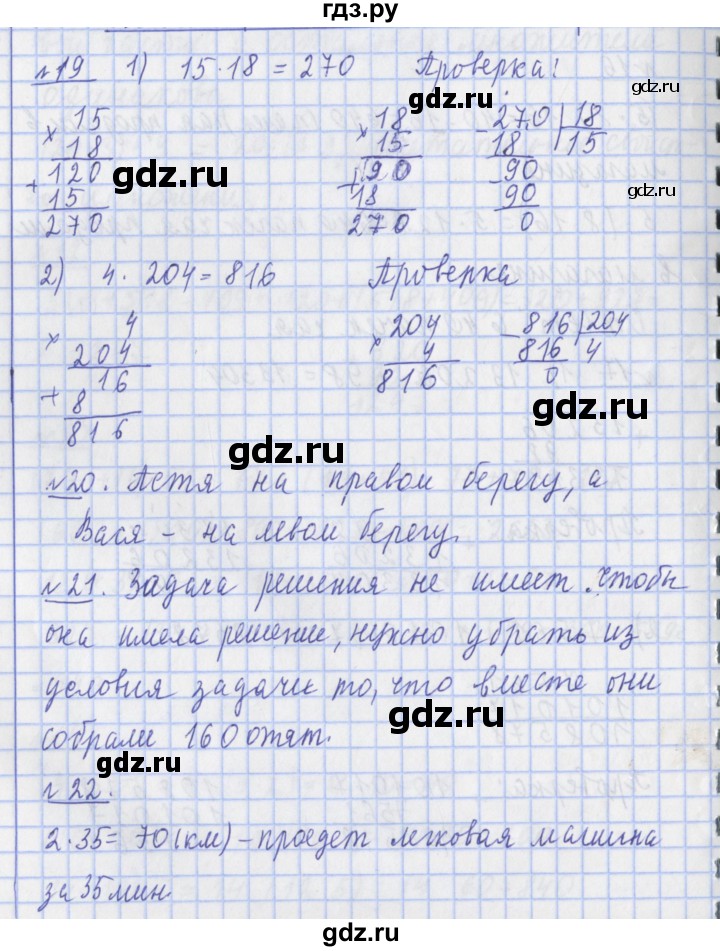 гдз.ру
№19 1) 15·18=270 Проверка!
× 15 × 18 - 270 | 18
18 15 18 15
120 + 90 - 90
+ 15 18 90
270 270 0
2) 4·204=816 Проверка
× 4 × 204 - 816 | 204
204 4 816 4
+ 16 816 0
8
816
№20. Петя на правом берегу, а
Вася - на левом берегу.
№21. Задача решения не имеет. Чтобы
она имела решение, нужно убрать из
условия задачи то, что вместе они
собрали 160 опят.
№22.
2·35=70(км) - проедет легковая машина
за 35 мин
gdz.ru
gdz.ru
gdz.ru
gdz.ru
gdz.ru
gdz.ru
gdz.ru
gdz.ru
gdz.ru
гдз.ру